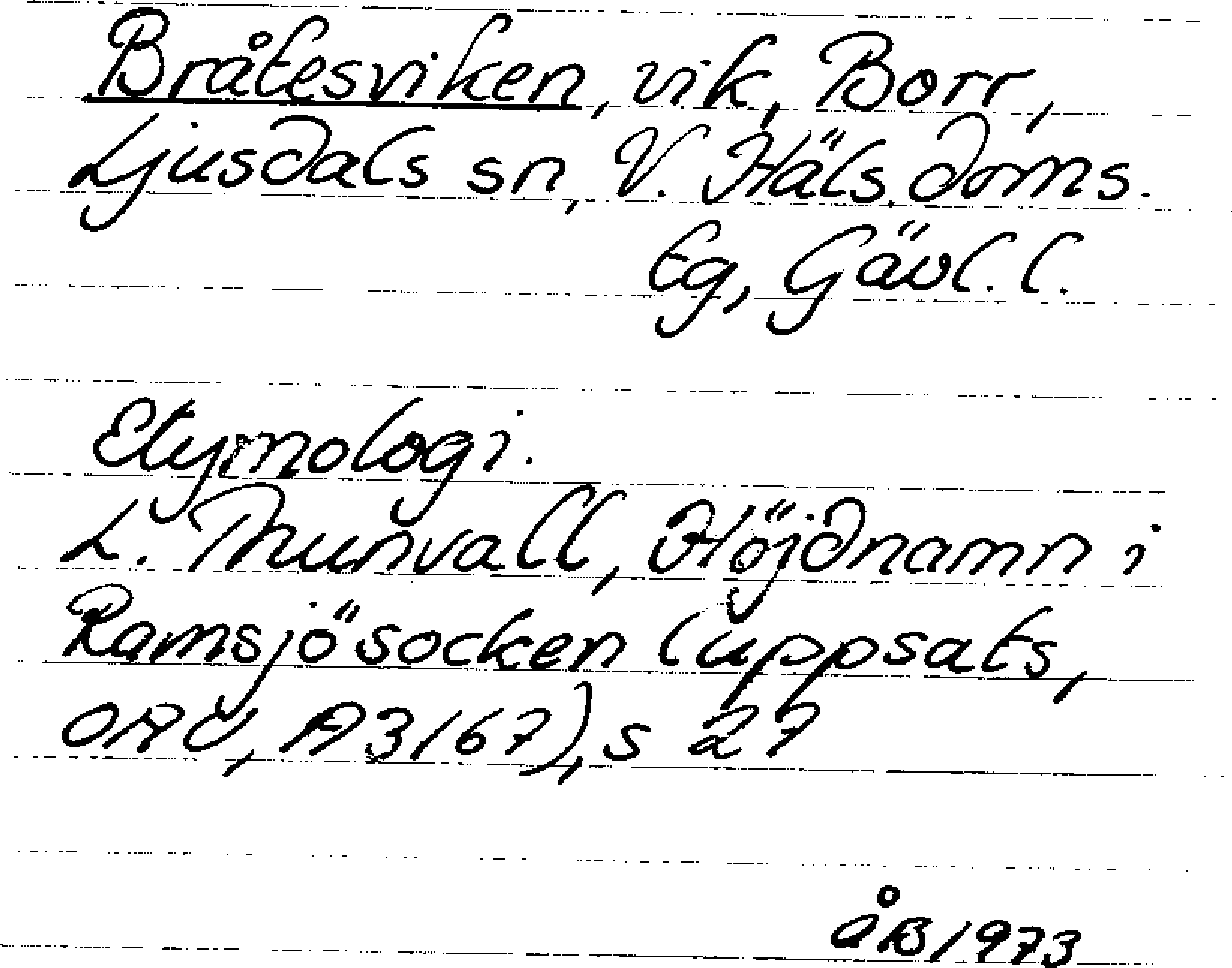 Bråtesviken, vik, Borr,
Ljusdals sn, V. Häls. doms.
Eg, Gävl. l.
Etymologi.
L. Thunvall, Höjdnamn i
Ramsjö socken (uppsats,
OAU, A3167), s 27
ÅB/1973